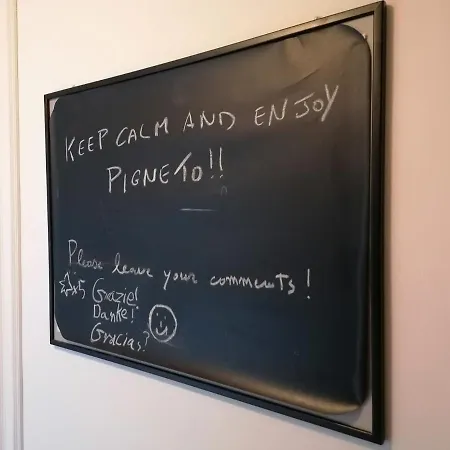 KEEP CALM AND ENJOY
PIGNETO!!
Please leave your comments!
☆5 Grazie!
Danke!
Gracias?